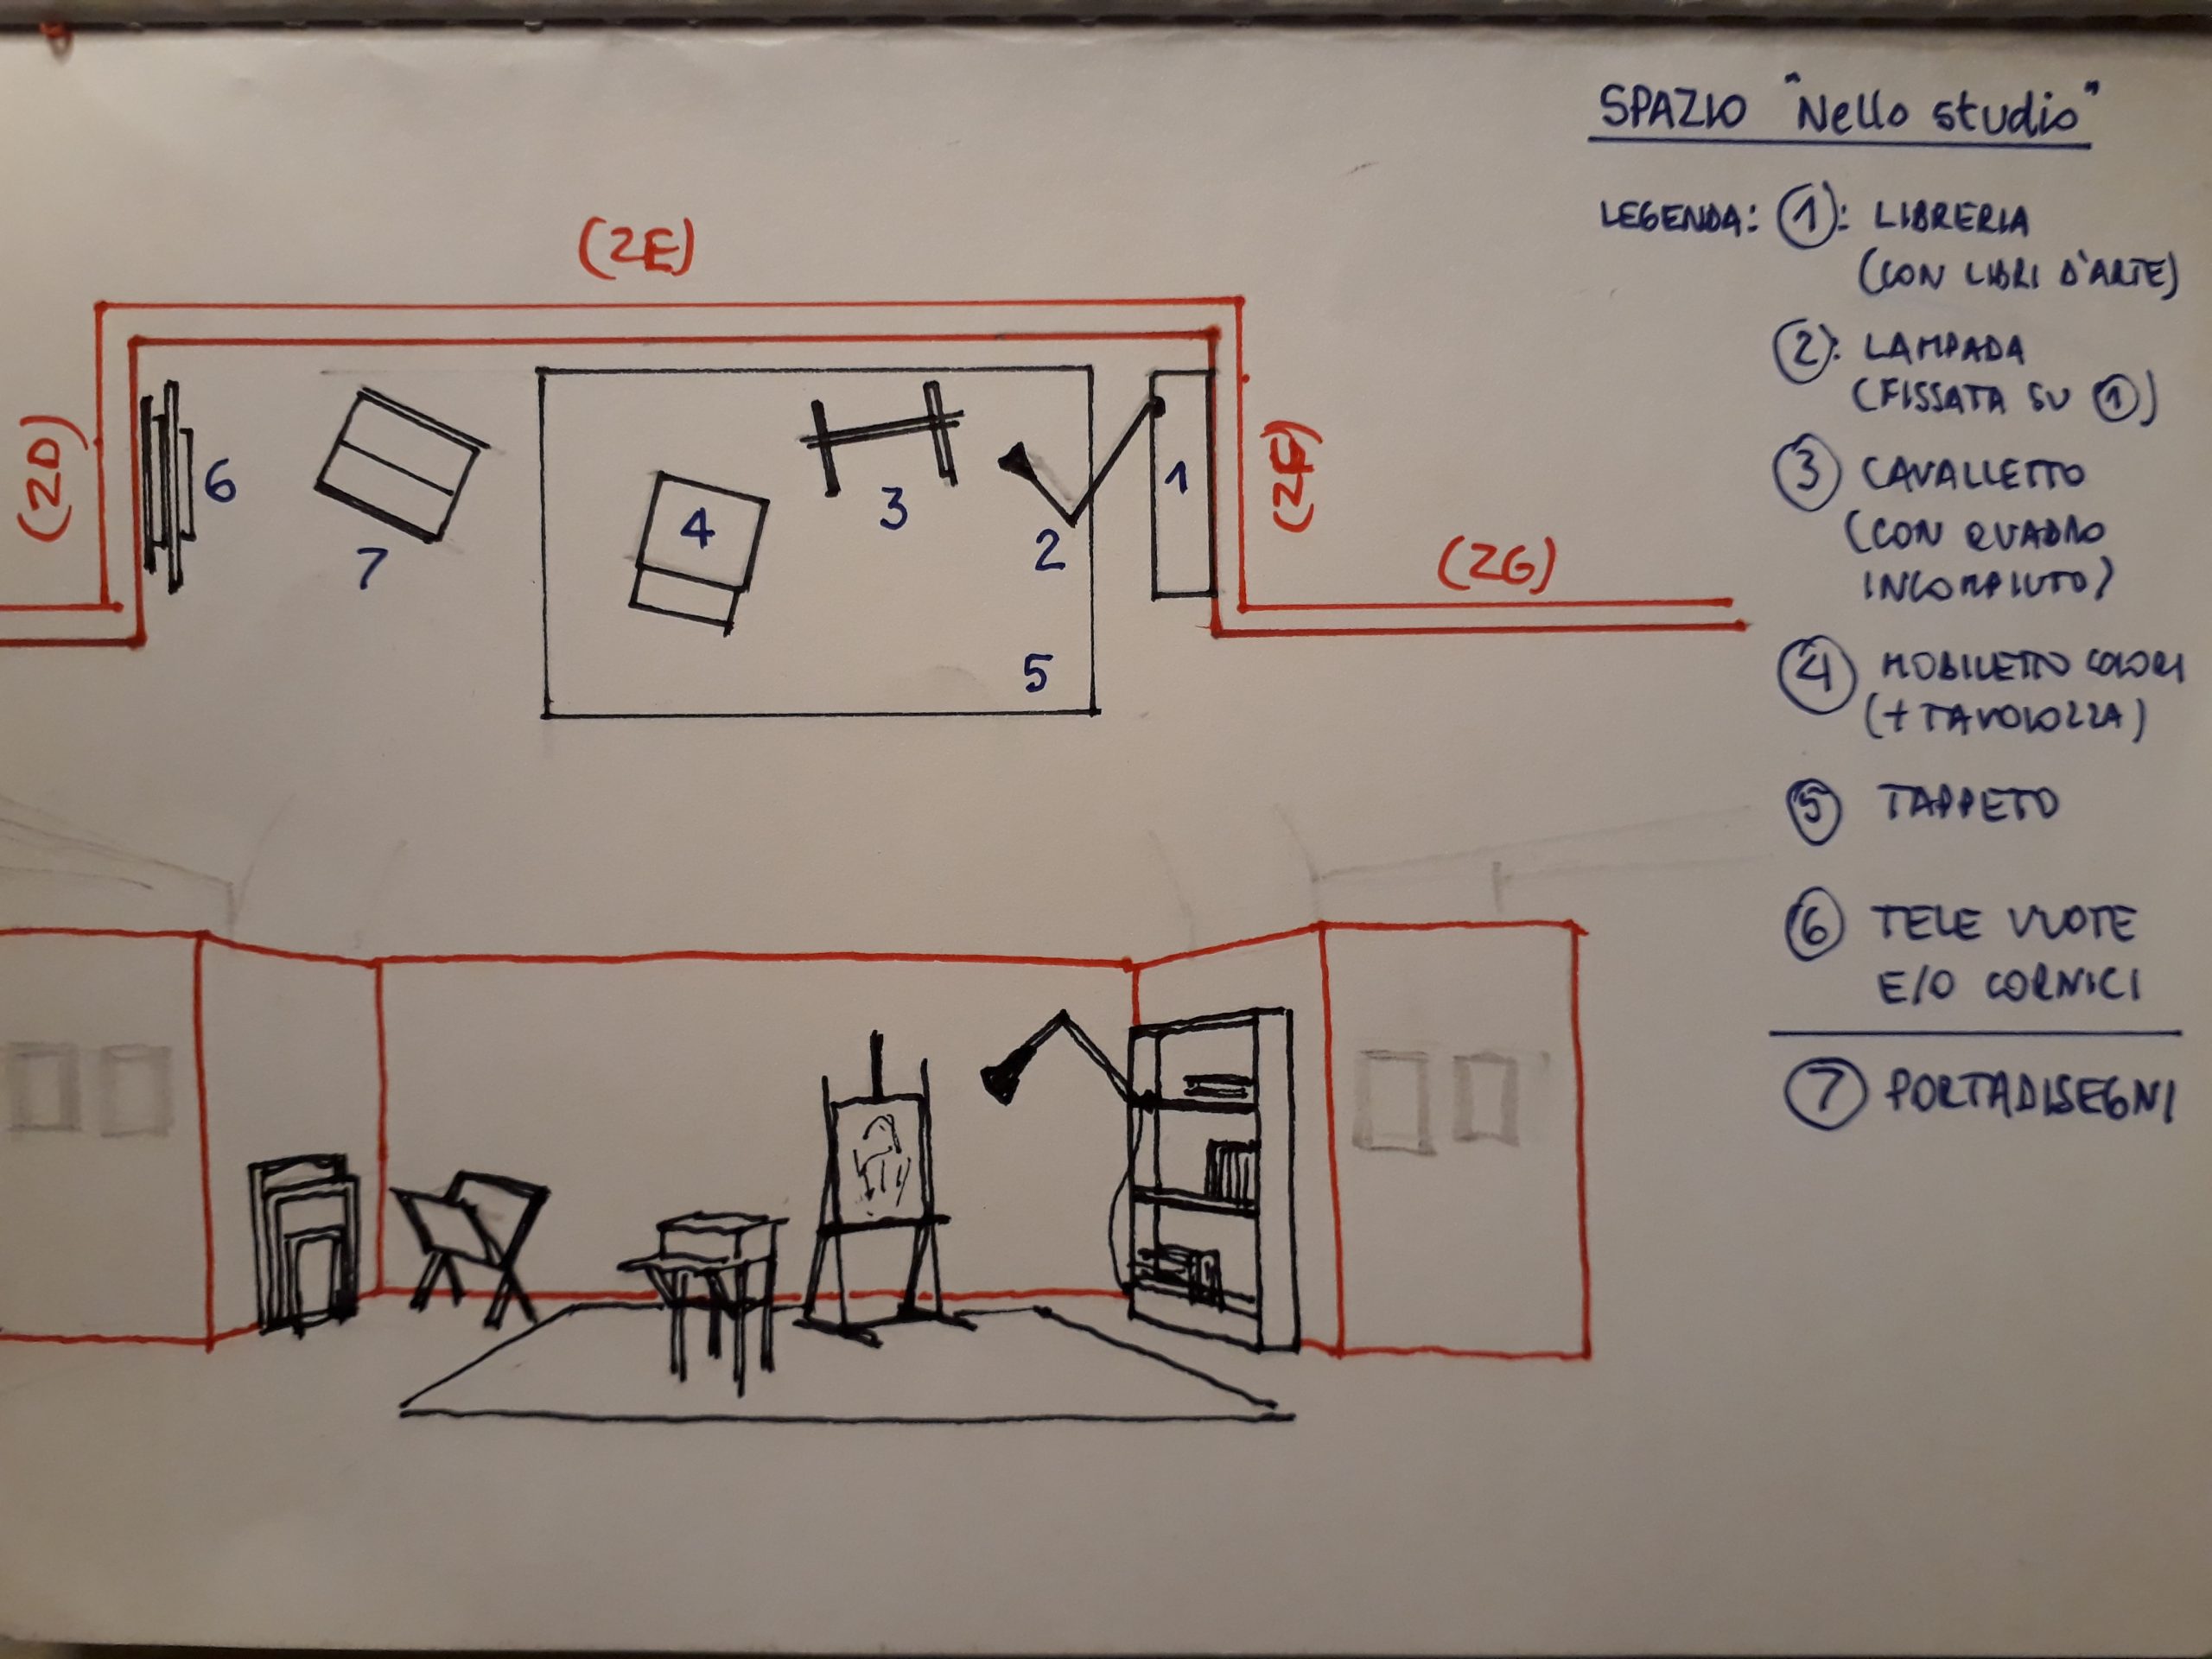 SPAZIO "Nello studio"
LEGENDA: 1: LIBRERIA
(CON LIBRI D'ARTE)
2: LAMPADA
(FISSATA SU 1)
3 CAVALLETTO
(CON QUADRO
INCOMPIUTO)
4 MOBILETTO COLORI
(+ TAVOLOZZA)
5 TAPPETO
6 TELE VUOTE
E/O CORNICI
7 PORTADISEGNI
(2E)
(2D)
(2F)
(2G)
6
7
4
3
2
1
5